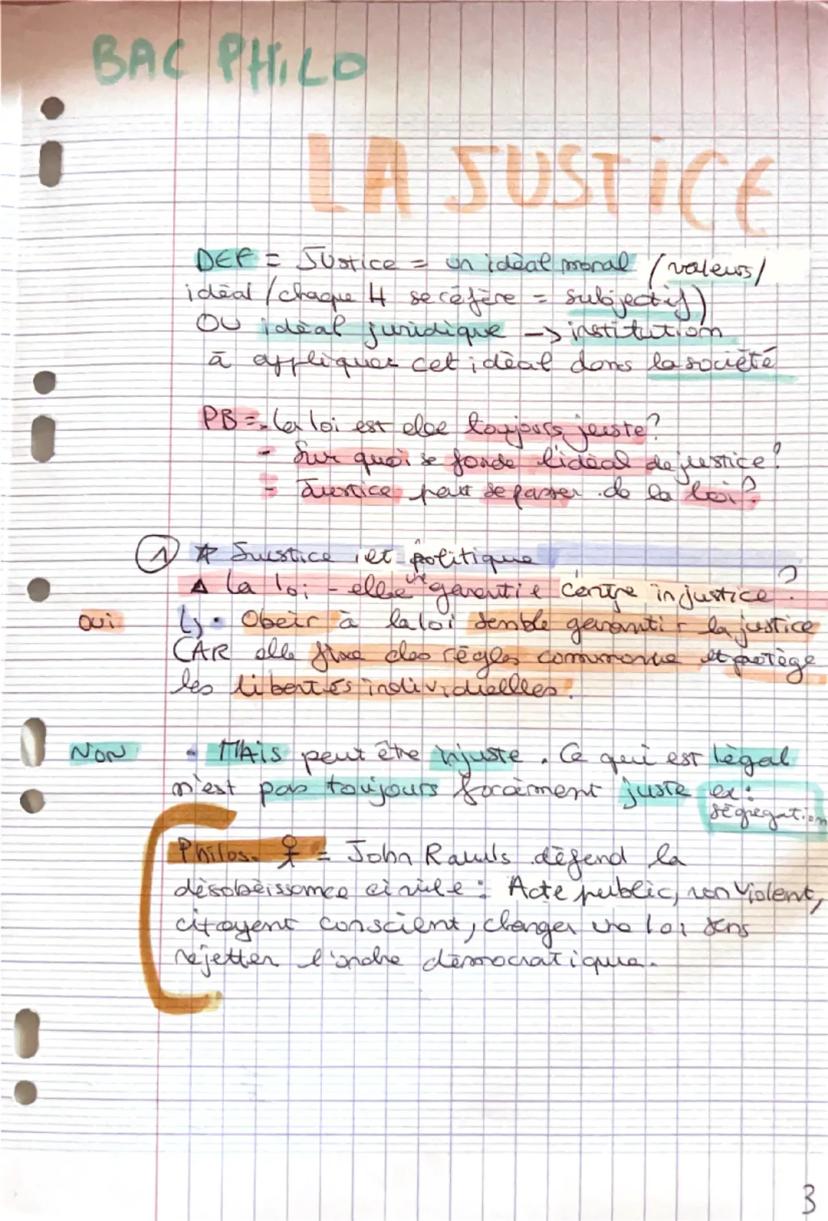 BAC PHILO
LA JUSTICE
DEF = Justice = un idéal moral (valeurs/
idéal/chaque H se réfère = subjectif)
OU idéal juridique -> institution
à appliquer cet idéal dans la société
PB = - La loi est elle toujours juste?
- Sur quoi se fonde l'idéal de justice?
- Justice peut se passer de la loi?
1 * Justice et politique
▲ La loi - elle une garantie contre injustice?
OUI ↳ • Obéir à la loi semble garantir la justice
CAR elle fixe des règles commune et protège
les libertés individuelles.
NON • MAIS peut être injuste. Ce qui est légal
n'est pas toujours forcément juste ex:
ségrégation
Philos. = John Rawls défend la
désobéissance civile : Acte public, non violent,
citoyent conscient, changer une loi sans
rejetter l'ordre démocratique.
3